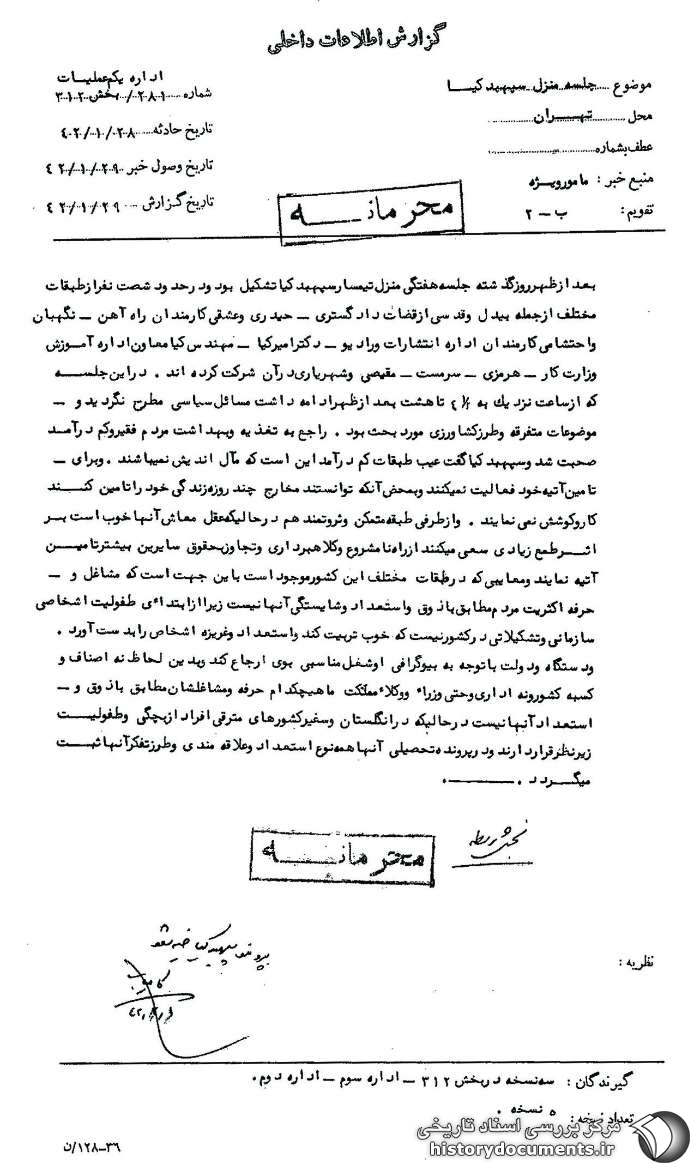 گزارش اطلاعات داخلی
اداره یکم عملیات
موضوع ..... جلسه منزل سپهبد کیا
شماره ..... ۲۸۱/ بخش ۳۱۲
محل ..... تهران .....
تاریخ حادثه ..... ۴۲/۱/۲۸
عطف بشماره .....
تاریخ وصول خبر ۴۲/۱/۲۹
منبع خبر : مامور ویژه
تاریخ گزارش ..... ۴۲/۱/۲۹
تقویم : ب - ۲
محرمانه
بعد از ظهر روز گذشته جلسه هفتگی منزل تیمسار سپهبد کیا تشکیل بود و در حدود شصت نفر از طبقات
مختلف از جمله بیدل وقدسی از قضات دادگستری - حیدری وعشقی کارمندان راه آهن - نگهبان
واحتشامی کارمندان اداره انتشارات ورادیو - دکتر امیرکیا - مهندس کیا معاون اداره آموزش
وزارت کار - هرمزی - سرمست - مقیمی وشهریاری در آن شرکت کرده اند . در این جلسه
که از ساعت نزدیک به ۴/۵ تا هشت بعد از ظهر ادامه داشت مسائل سیاسی مطرح نگردید و -
موضوعات متفرقه وطرز کشاورزی مورد بحث بود . راجع به تغذیه وبهداشت مردم فقیر وکم درآمد
صحبت شد وسپهبد کیا گفت عیب طبقات کم درآمد این است که مآل اندیش نمیباشند . وبرای -
تامین آتیه خود فعالیت نمیکنند وبمحض آنکه توانستند مخارج چند روزه زندگی خود را تامین کنند
کار وکوشش نمی نمایند . واز طرفی طبقه متمکن وثروتمند هم در حالیکه عقل معاش آنها خوب است بر
اثر طمع زیادی سعی میکنند از راه نامشروع وکلاهبرداری وتجاوز بحقوق سایرین بیشتر تامین
آتیه نمایند ومعایبی که در طبقات مختلف این کشور موجود است باین جهت است که مشاغل و -
حرفه اکثریت مردم مطابق با ذوق واستعداد وشایستگی آنها نیست زیرا از ابتدای طفولیت اشخاصی
سازمانی وتشکیلاتی در کشور نیست که خوب تربیت کند واستعداد وغریزه اشخاص را بدست آورد .
ودستگاه ودولت با توجه به بیوگرافی او شغل مناسبی بوی ارجاع کند وبدین لحاظ نه اصناف و
کسبه کشور ونه اداری وحتی وزراء ووکلاء مملکت ما هیچکدام حرفه ومشاغلشان مطابق با ذوق و -
استعداد آنها نیست در حالیکه در انگلستان وسایر کشورهای مترقی افراد از بچگی وطفولیت
زیر نظر قرار دارند ودر پرونده تحصیلی آنها همه نوع استعداد وعلاقه مندی وطرز تفکر آنها ثبت
میگردد .
محرمانه
نظریه :
گیرندگان : سه نسخه در بخش ۳۱۲ - اداره سوم - اداره دوم .
تعداد نسخه : ۵ نسخه .
۳۶-۱۲۸/ن
مرکز بررسی اسناد تاریخی
historydocuments.ir